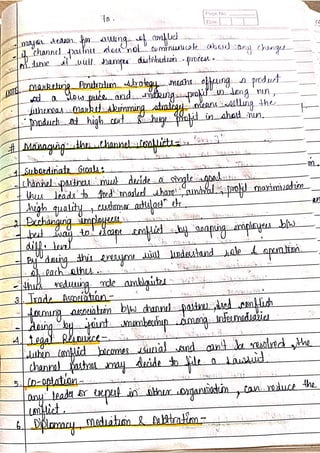 70.
Page No.
Date
- major reason for arising of conflict
- if channel partner does not communicate about any changes
on time it will hamper distribution process.
NOTE Marketing Penetration strategy means offering a product
at a low price and making profit in long run,
whereas market skimming strategy means selling the
product at high cost & huge profit in short run.
# Managing the channel conflicts:-
1. Subordinate Goals:
- channel partners must decide a single goal
- thus leads to good market share, survival, profit maximisation
high quality, customer satisfact etc.
2. Exchanging employees
- best way to escape conflict by swaping employees b/w
diff. level
- By doing this everyone will understand role & operation
of each other.
- thus reducing role ambiguites
3. Trade Association -
- forming association b/w channel partner and conflicts
- doing by joint membership among intermediaries
4. Legal Resource -
- when conflict becomes serial and can't be resolved, the
channel partner may decide to file a lawsuit.
5. Co-optation -
any leader or expert in other organisation, can reduce the
conflict.
6. Diplomacy, mediation & Arbitration -